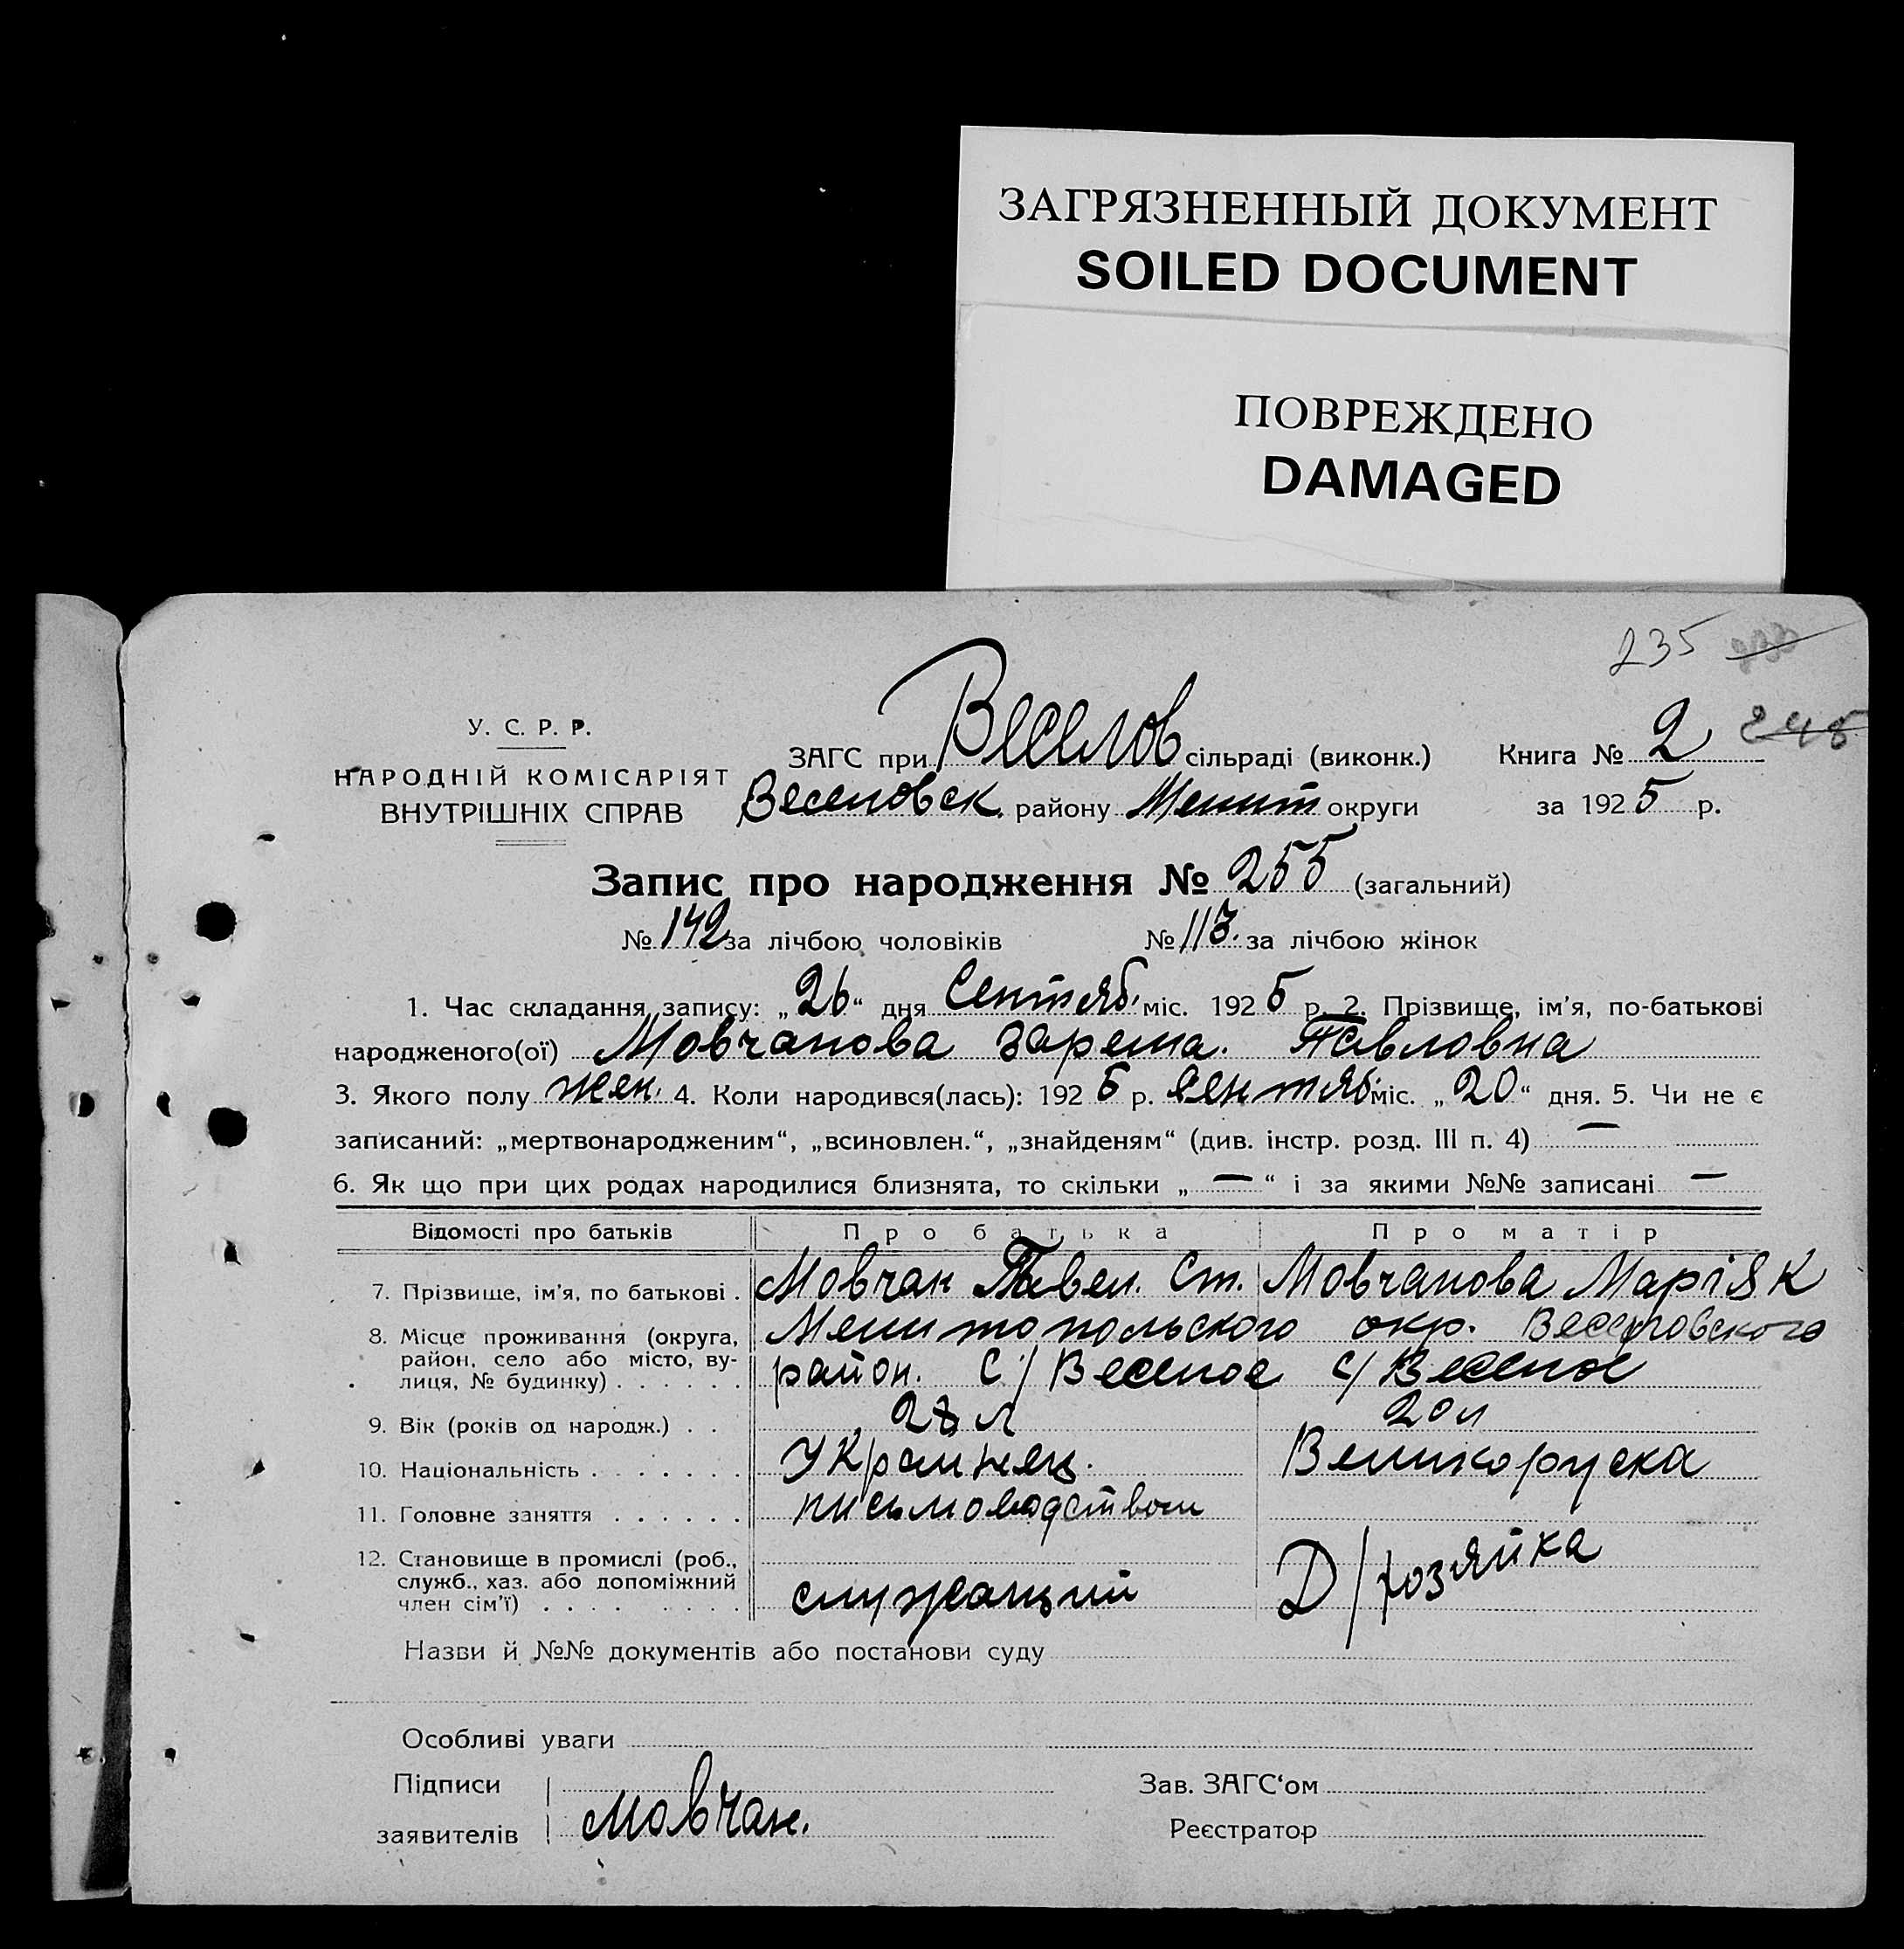 ЗАГРЯЗНЕННЫЙ ДОКУМЕНТ
SOILED DOCUMENT
ПОВРЕЖДЕНО
DAMAGED
235
245
У. С. Р. Р.
НАРОДНІЙ КОМІСАРІЯТ
ВНУТРІШНІХ СПРАВ
ЗАГС при Веселов сільраді (виконк.) Книга № 2
Веселовск. району Мелит округи за 1925 р.
Запис про народження № 255 (загальний)
№ 142 за лічбою чоловіків № 113. за лічбою жінок
1. Час складання запису: „26“ дня Сентяб. міс. 1925 р. 2. Прізвище, ім'я, по-батькові
народженого(ої) Мовчанова Зарема. Павловна
3. Якого полу жен. 4. Коли народився(лась): 1925 р. Сентяб. міс. „20“ дня. 5. Чи не є
записаний: „мертвонародженим“, „всиновлен.“, „знайденям“ (див. інстр. розд. III п. 4) —
6. Як що при цих родах народилися близнята, то скільки „—“ і за якими №№ записані —
Відомості про батьків Про батька Про матір
7. Прізвище, ім'я, по батькові . Мовчан Павел. Ст. Мовчанова Марія К
8. Місце проживання (округа, Мелитопольского окр. Веселовского
район, село або місто, ву- район. С/Веселое с/Веселое
лиця, № будинку) . . . . . .
9. Вік (років од народж.) . . 28 л 20 л
10. Національність . . . . . . . Украинец. Великоруска
11. Головне заняття . . . . . . письмоводством
12. Становище в промислі (роб., Д/хозяйка
служб., хаз. або допоміжний служащий
член сім'ї) . . . . . . . . .
Назви й №№ документів або постанови суду
Особливі уваги
Підписи Зав. ЗАГС'ом
заявителів Мовчан. Реєстратор